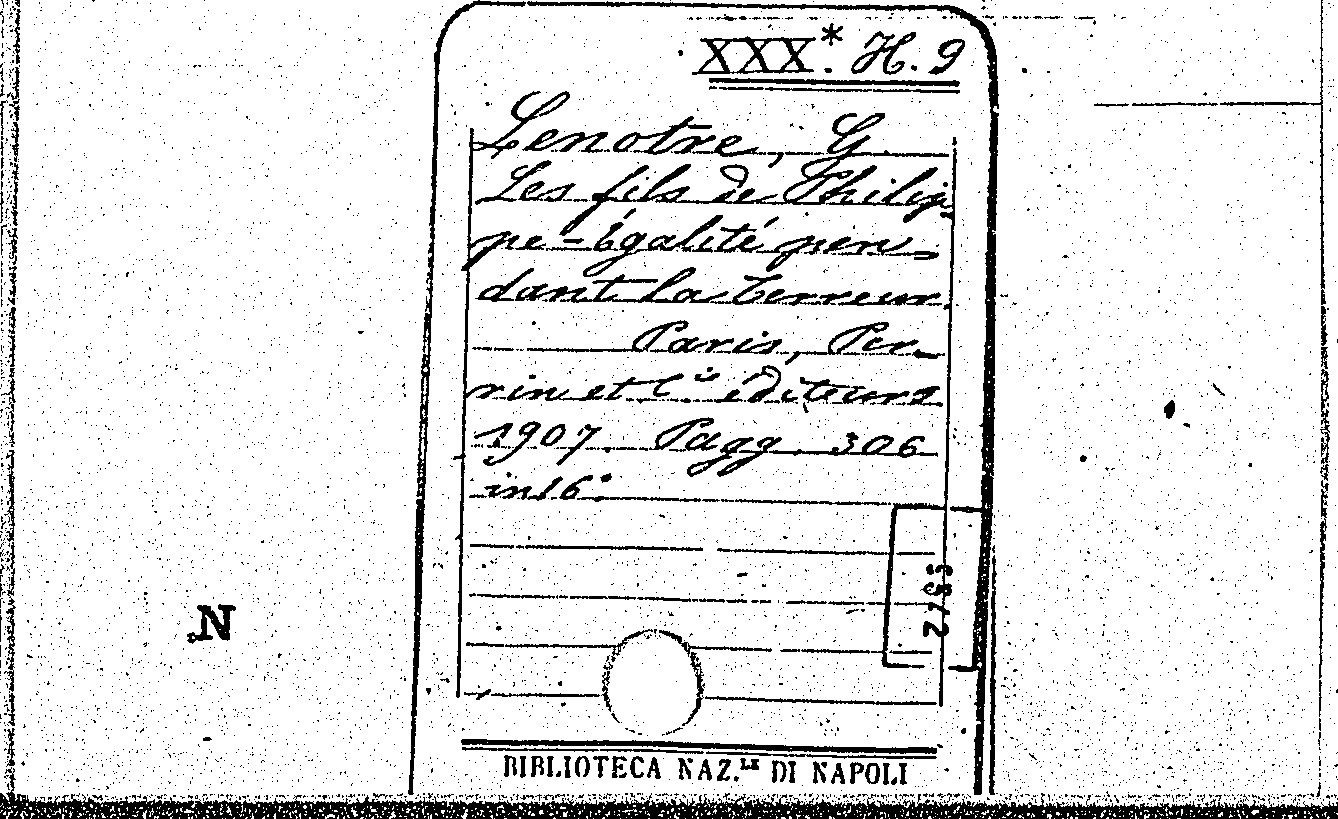 XXX*. H. 9
Lenotre, G.
Les fils de Philip-
pe-Égalité pen-
dant la Terreur.
Paris, Per-
rin et C.ie éditeurs
1907. Pagg. 306
in 16°.
N
BIBLIOTECA NAZ.LE DI NAPOLI